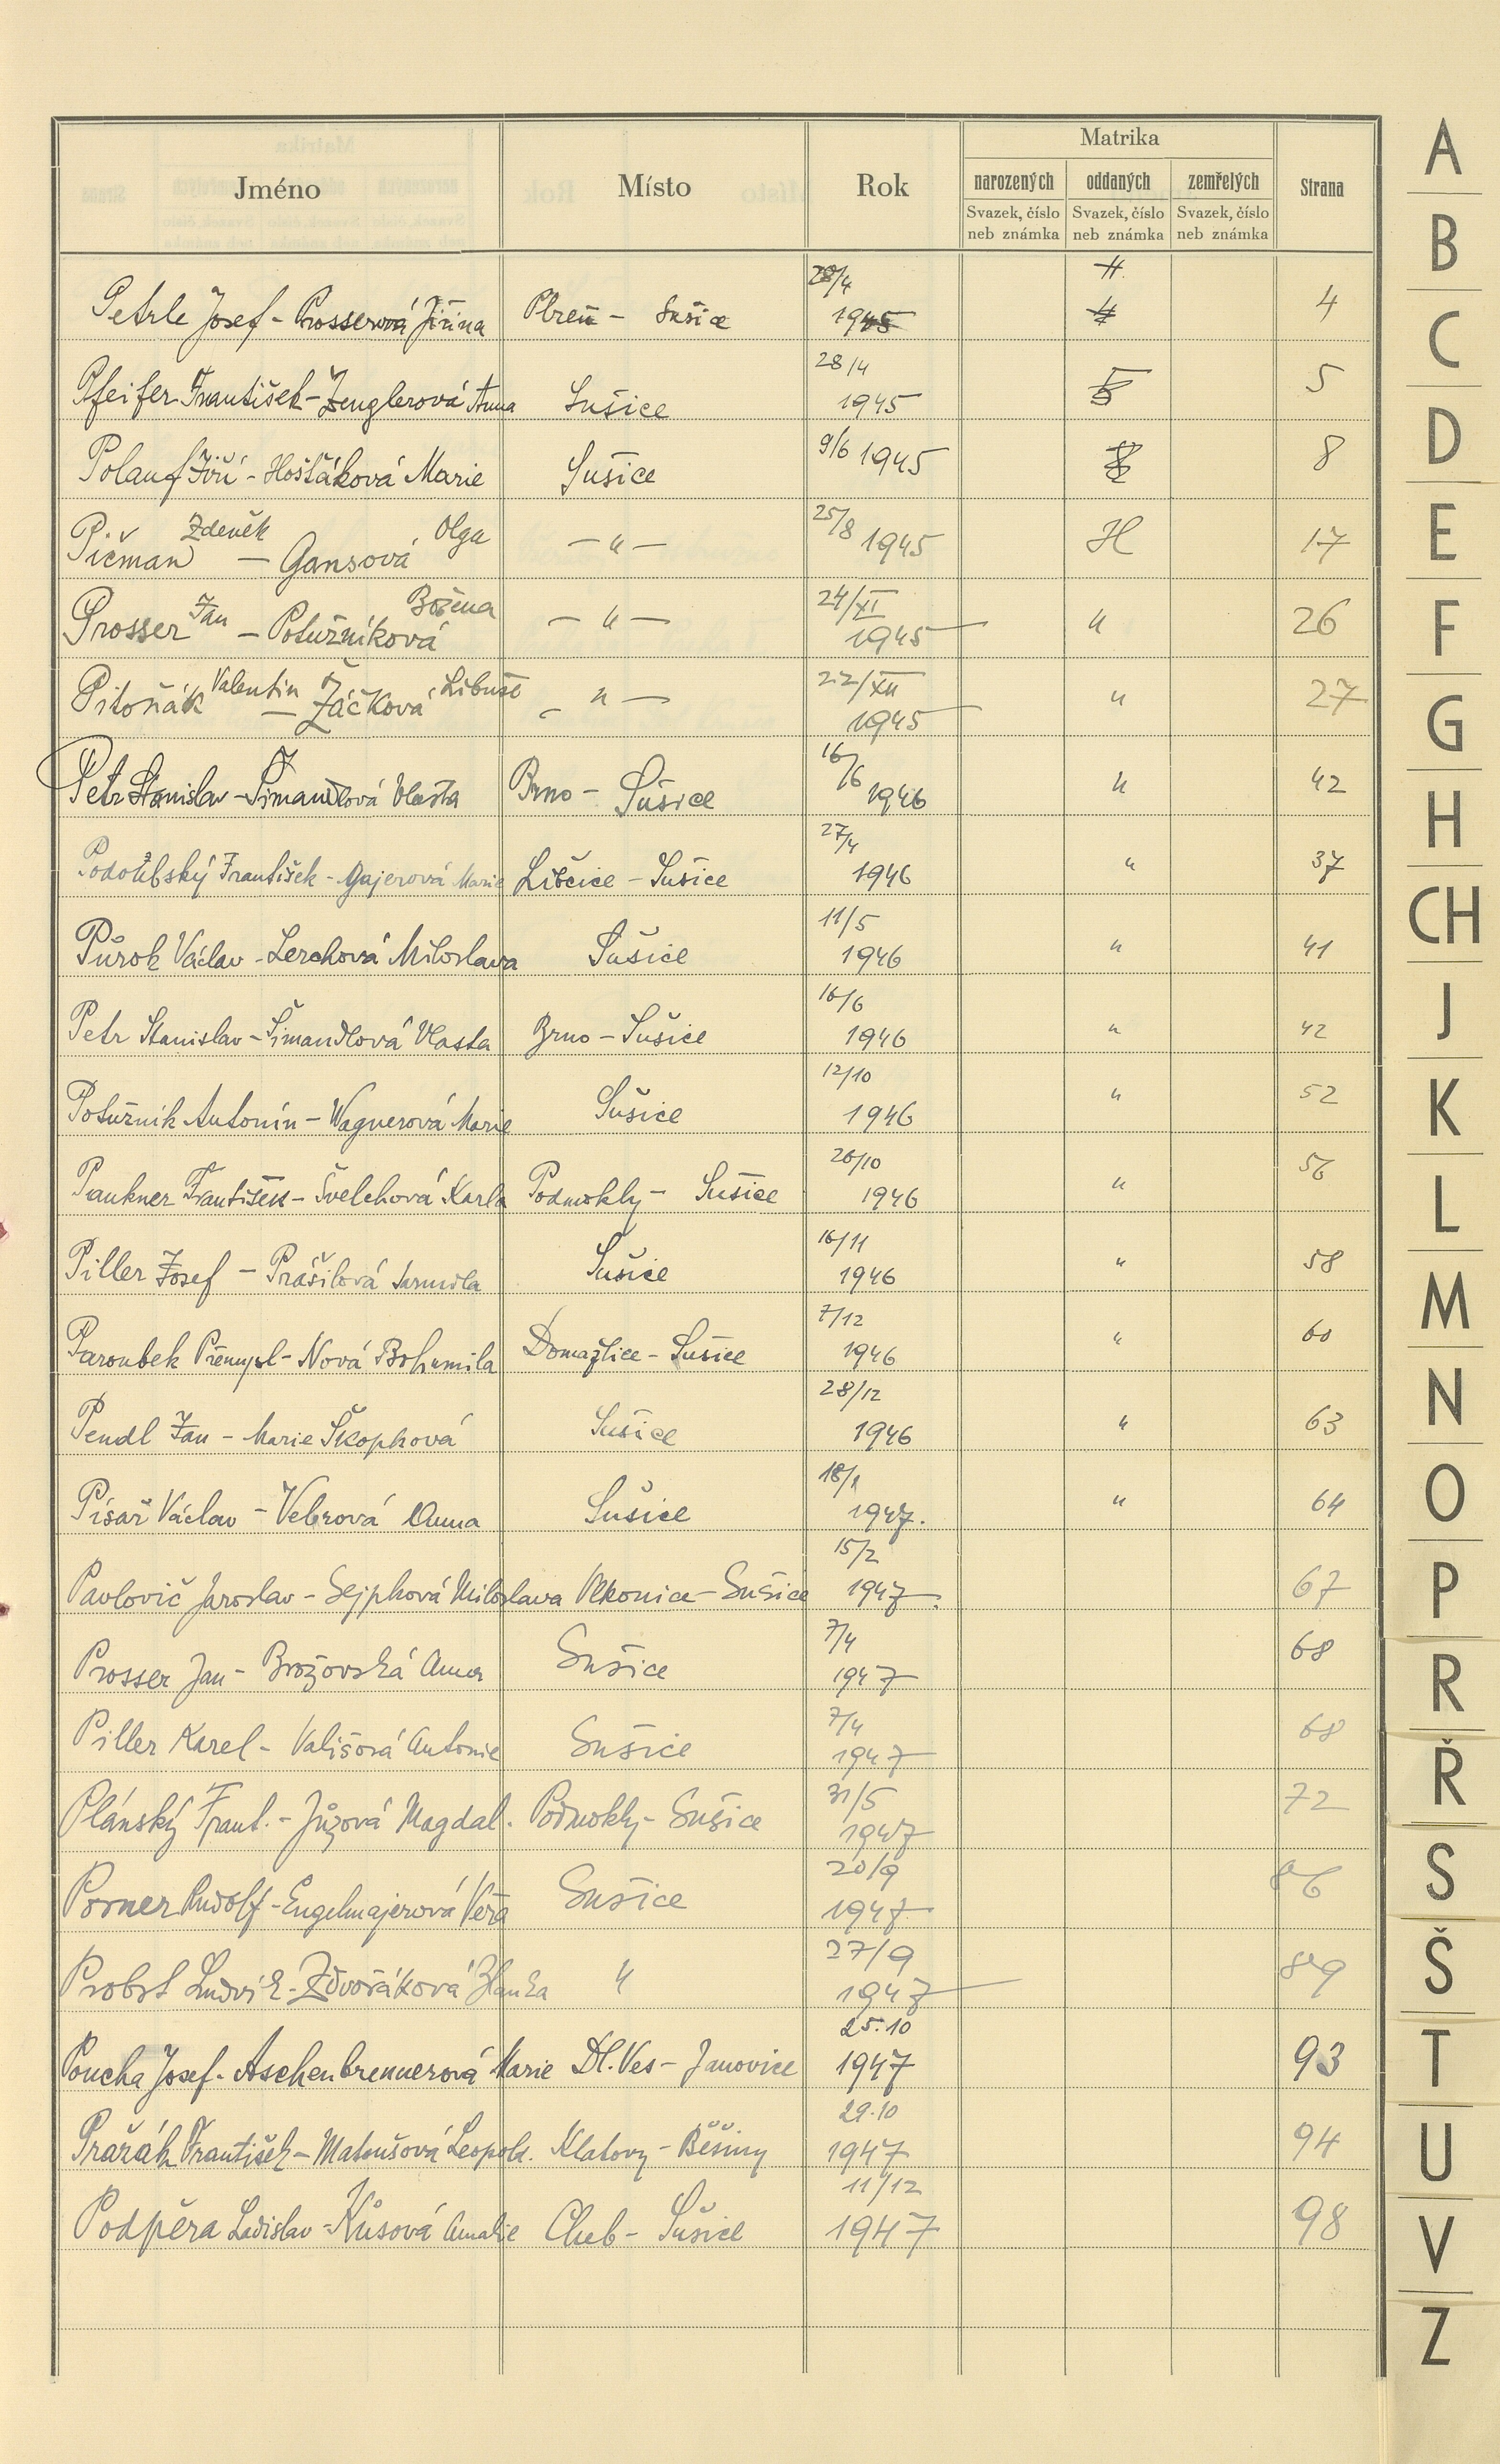 Jméno Místo Rok Matrika Strana
narozených oddaných zemřelých
Svazek, číslo neb známka Svazek, číslo neb známka Svazek, číslo neb známka
Petrle Josef - Prosserová Jiřina Plzeň - Sušice 28/4 1945 4
Pfeifer František - Zenglerová Anna Sušice 28/4 1945 5 5
Polauf Jiří - Hošťáková Marie Sušice 9/6 1945 8
Pičman Zdeněk - Gansová Olga - " - 25/8 1945 17
Prosser Jan - Potužníková Božena - " - 24/XI 1945 " 26
Pitoňák Valentin - Žáčková Libuše - " - 22/XII 1945 " 27
Petr Stanislav - Šimandlová Vlasta Brno - Sušice 16/6 1946 " 42
František - Gajerová Marie Libčice - Sušice 27/4 1946 " 37
Půrok Václav - Lerchová Miloslava Sušice 11/5 1946 " 41
Petr Stanislav - Šimandlová Vlasta Brno - Sušice 16/6 1946 " 42
Potužník Antonín - Wagnerová Marie Sušice 12/10 1946 " 52
Paukner František - Švelchová Karla Podmokly - Sušice 26/10 1946 " 56
Piller Josef - Prášilová Jarmila Sušice 16/11 1946 " 58
Paroubek Přemysl - Nová Bohumila Domažlice - Sušice 7/12 1946 " 60
Pendl Jan - Marie Škopková Sušice 28/12 1946 " 63
Písař Václav - Vebrová Anna Sušice 18/1 1947. " 64
Pavlovič Jaroslav - Sejpková Miloslava Vlkonice - Sušice 15/2 1947. 67
Prosser Jan - Brožovská Anna Sušice 7/4 1947 68
Piller Karel - Vališová Antonie Sušice 7/4 1947 68
Plánský Frant. - Jůzová Magdal. Podmokly - Sušice 31/5 1947 72
Porner Rudolf - Engelmajerová Věra Sušice 20/9 1947 86
Probst Ludvík - Zdvořáková Blanka " 27/9 1947 89
Poucha Josef - Aschenbrennerová Marie Dl. Ves - Janovice 25.10 1947 93
Pražák František - Matoušová Leopold. Klatovy - Běšiny 29.10 1947 94
Podpěra Ladislav - Kůsová Amalie Cheb - Sušice 11/12 1947 98
A
B
C
D
E
F
G
H
CH
J
K
L
M
N
O
P
R
Ř
S
Š
T
U
V
Z